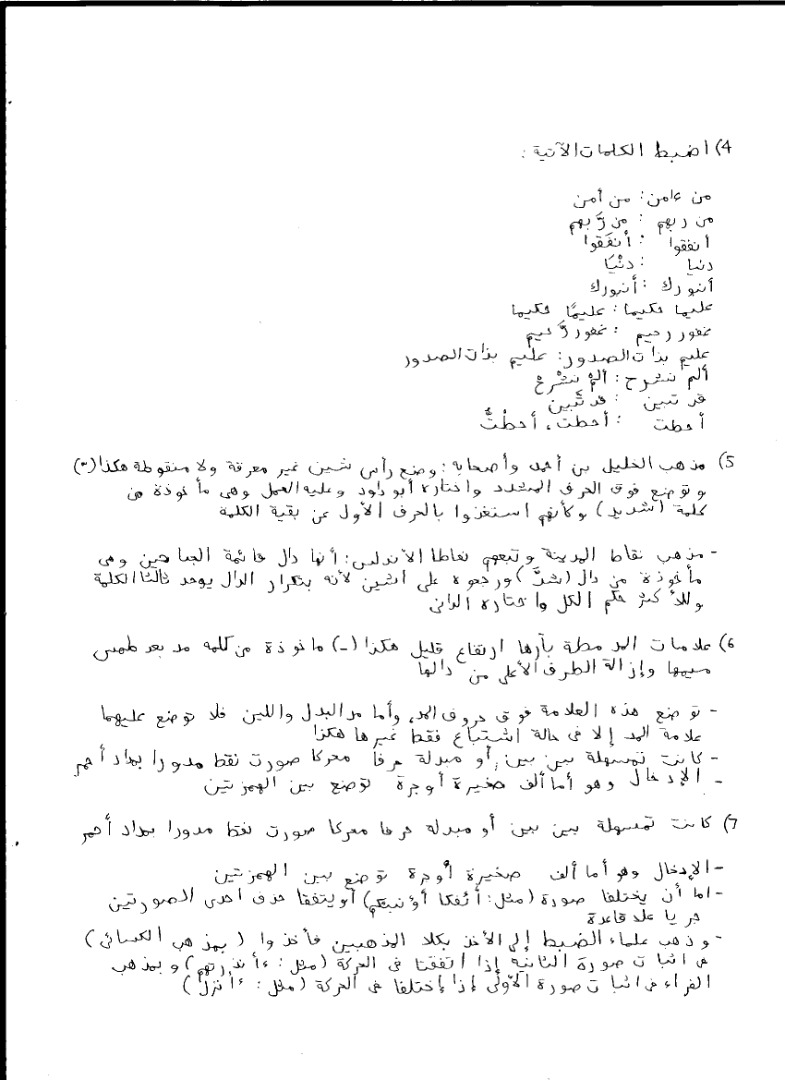 4) اضبط الكلمات الآتية :
من ءامن : من أمن
من ربهم : من رَّبهم
أنفقوا : أُنفَقوا
دنيا : دنْيَا
أنبورك : أنبورك
عليما حكيما : عليمًا حكيما
غفور رحيم : غفور رَّحيم
عليم بذات الصدور : عليم بذات الصدور
ألم نشرح : ألمْ نشْرحْ
قد تبين : قد تَّبين
أحطت : أحطت ، أحطْتُّ
5) مذهب الخليل بن أحمد وأصحابه : وضع رأس شين غير معرقة ولا منقوطة هكذا (ّ)
وتوضع فوق الحرف المشدد واختاره أبو داود وعليه العمل وهى مأخوذة من
كلمة (شديد) وكأنهم استغنوا بالحرف الأول عن بقية الكلمة
- مذهب نقاط المدينة وتبعهم نقاط الأندلس : أنها دال قائمة الجناحين وهى
مأخوذة من دال (شدَّ) ورجعوه على الشين لأنه بتكرار الدال يوجد ثالثا الكلمة
وللأكثر حكم الكل واختاره الدانى
6) علامات المد مطة بآرها ارتفاع قليل هكذا (~) ماخوذة من كلمه مد بعد طمس
ميمها وإزالة الطرف الأعلى من دالها
- توضع هذه العلامة فوق حروف المد، وأما مد البدل واللين فلا توضع عليهما
علامة المد إلا فى حالة اشتباع فقط غيرها هكذا
- كانت تمسهلة بين بين، أو مبدلة حرفا محركا صورت نقط مدورا بمداد أحمر
- الإدخال وهو أما ألف صغيرة أوجرة توضع بين الهمزتين
7) كانت تمسهلة بين بين أو مبدله حرفا محركا صورت نقط مدورا بمداد أحمر
- الإدخال وهو أما ألف صغيرة أوجرة توضع بين الهمزتين
- اما أن يختلفا صورة (مثل : أئفكا أؤنبئكم) أو يتفقا حذف احدى الصورتين
جريا على قاعدة
- وذهب علماء الضبط إلى الأخذ بكلا المذهبين فأخذوا (بمذهب الكسائى)
فى اثبات صورة الثانية إذا اتفقتا فى الحركة (مثل : ءأنذرتهم) وبمذهب
الفراء فى اثبات صورة الأولى إذا إختلفا فى الحركة (مثل : أءنزل)